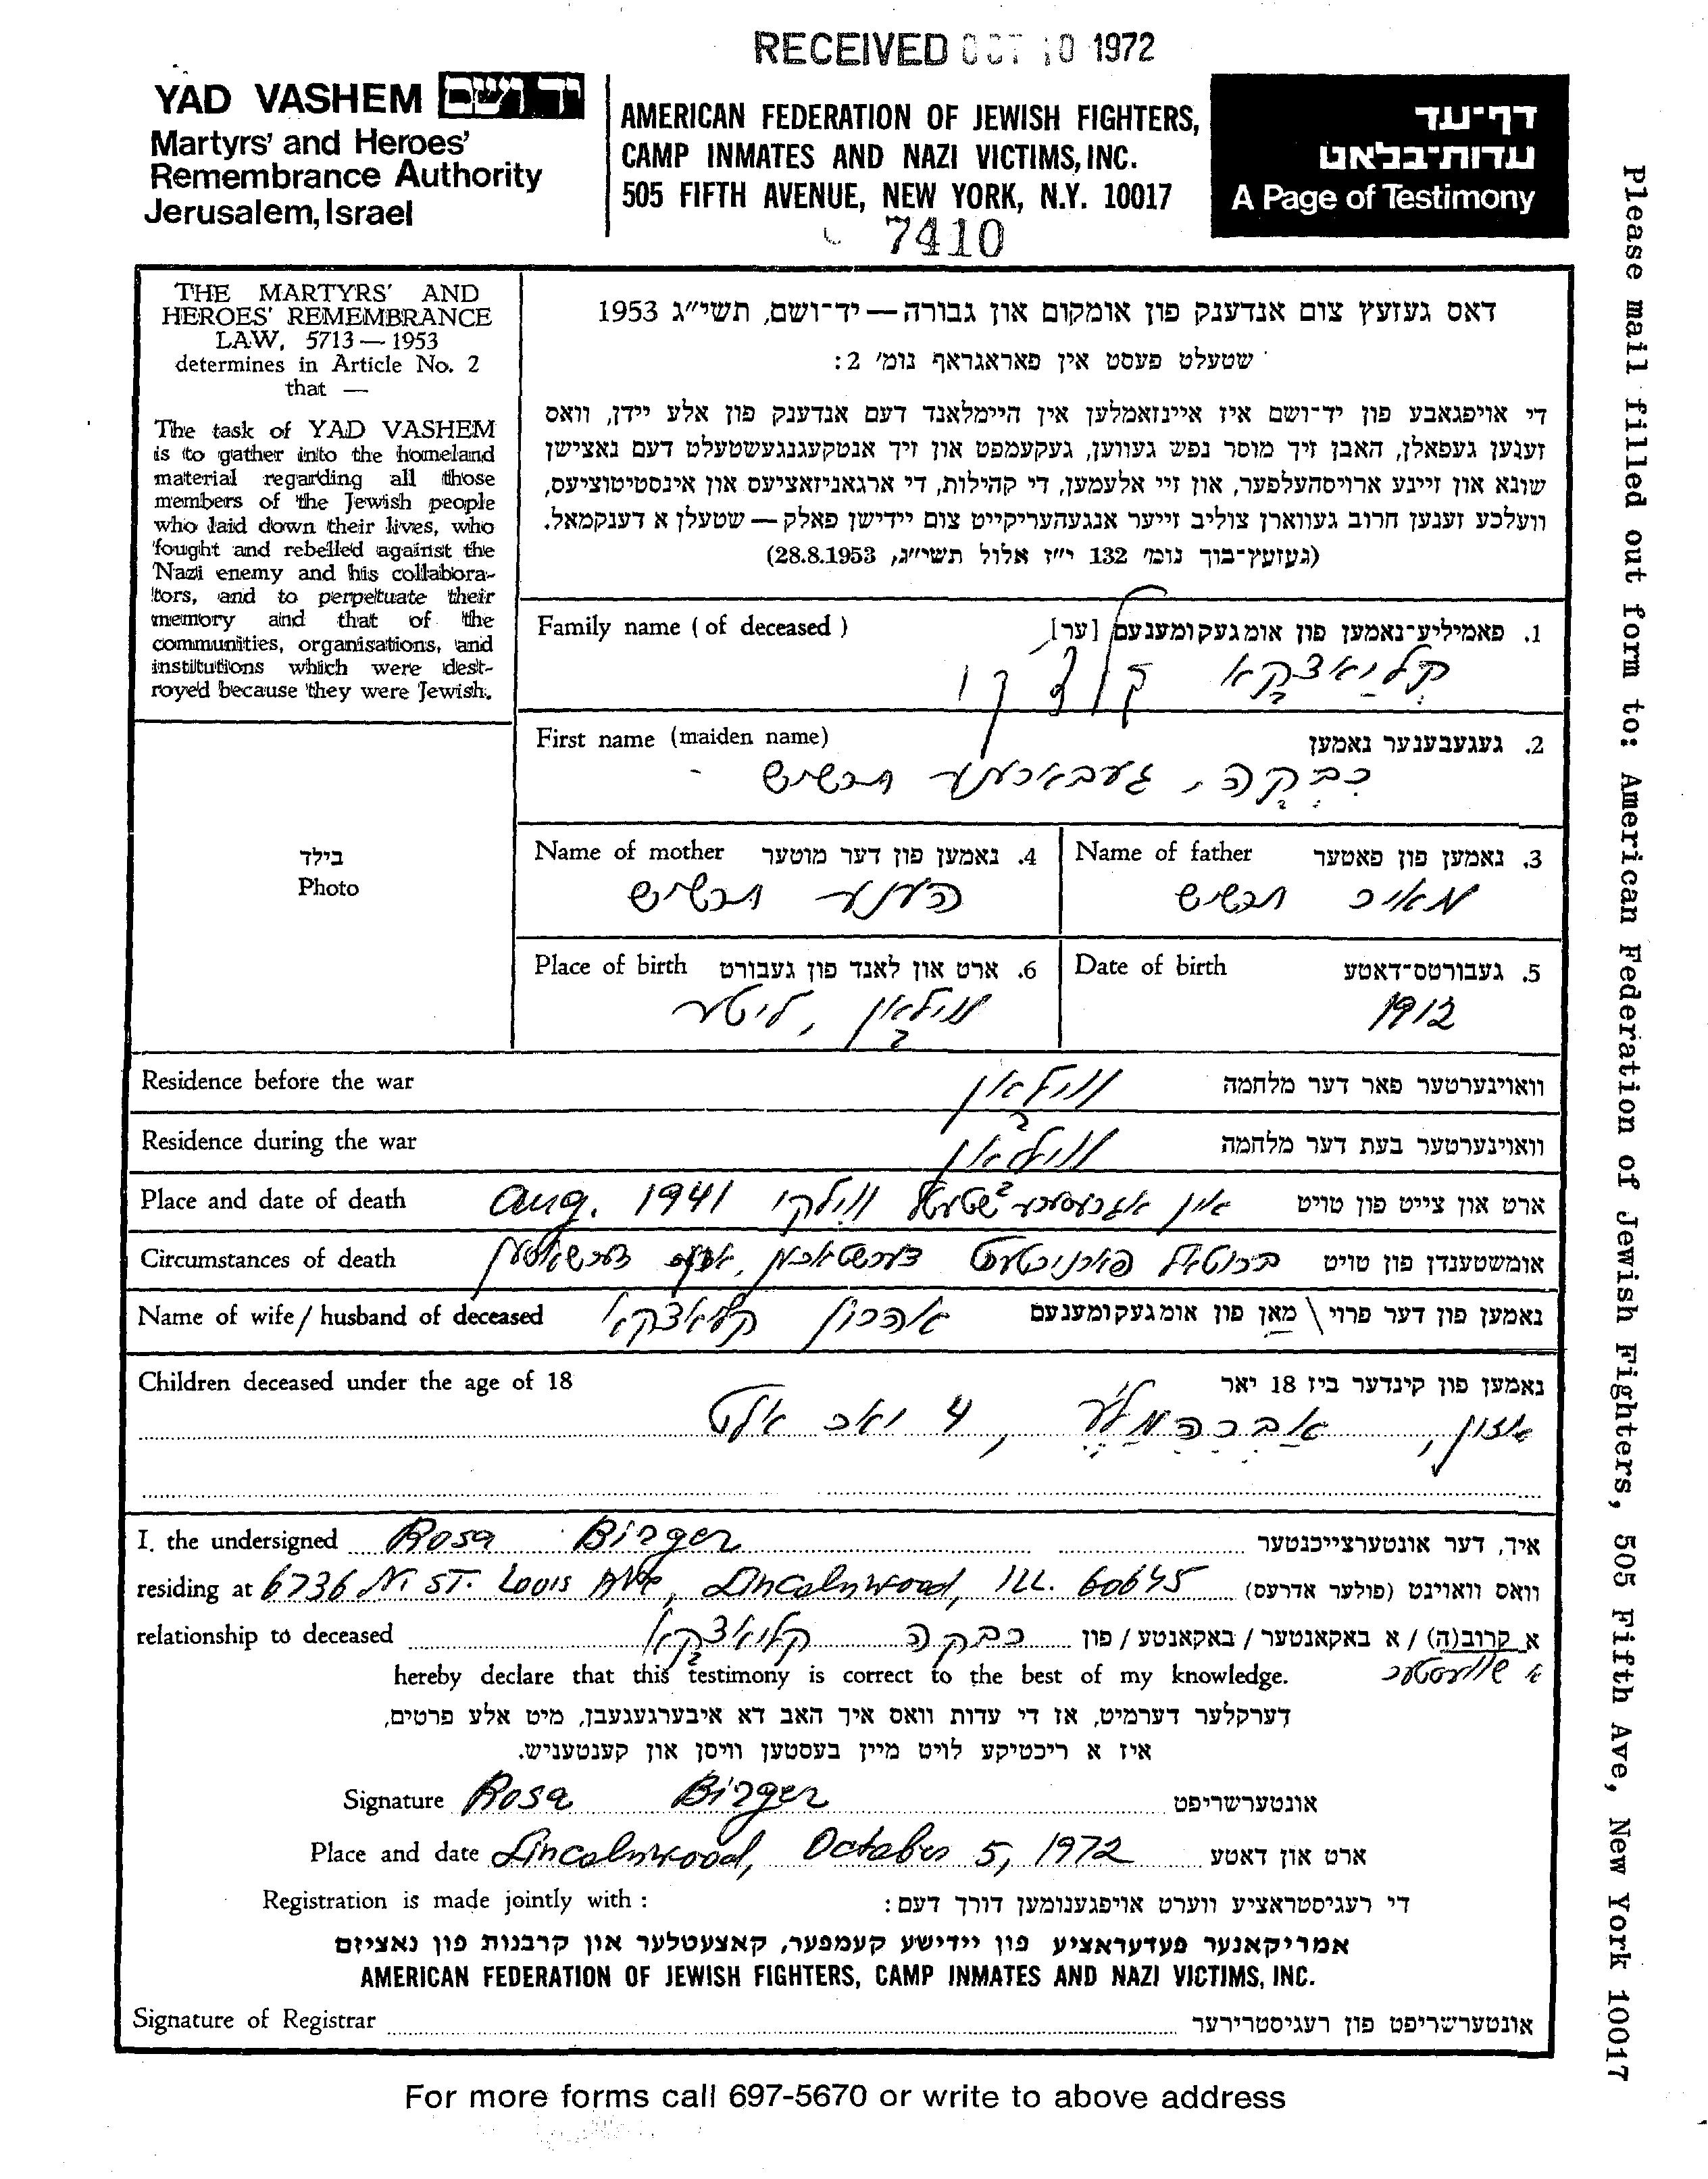 RECEIVED OCT 10 1972
YAD VASHEM יד ושם
Martyrs' and Heroes'
Remembrance Authority
Jerusalem, Israel
AMERICAN FEDERATION OF JEWISH FIGHTERS,
CAMP INMATES AND NAZI VICTIMS, INC.
505 FIFTH AVENUE, NEW YORK, N.Y. 10017
7410
דף־עד
עדות־בלאט
A Page of Testimony
THE MARTYRS' AND
HEROES' REMEMBRANCE
LAW, 5713 — 1953
determines in Article No. 2
that —
The task of YAD VASHEM
is to gather into the homeland
material regarding all those
members of the Jewish people
who laid down their lives, who
fought and rebelled against the
Nazi enemy and his collabora-
tors, and to perpetuate their
memory and that of the
communities, organisations, and
institutions which were dest-
royed because they were Jewish.
דאס געזעץ צום אנדענק פון אומקום און גבורה — יד־ושם, תשי״ג 1953
שטעלט פעסט אין פאראגראף נומ׳ 2:
די אויפגאבע פון יד־ושם איז איינזאמלען אין היימלאנד דעם אנדענק פון אלע יידן, וואס
זענען געפאלן, האבן זיך מוסר נפש געווען, געקעמפט און זיך אנטקעגנגעשטעלט דעם נאצישן
שונא און זיינע ארויסהעלפער, און זיי אלעמען, די קהילות, די ארגאניזאציעס און אינסטיטוציעס,
וועלכע זענען חרוב געווארן צוליב זייער אנגעהעריקייט צום יידישן פאלק — שטעלן א דענקמאל.
(געזעץ־בוך נומ׳ 132 י״ז אלול תשי״ג, 28.8.1953)
Family name ( of deceased ) 1. פאמיליע־נאמען פון אומגעקומענעם [ער]
קליאצקא
First name (maiden name) 2. געגעבענער נאמען
רבקה, געבארענע תכשיט
Name of mother 4. נאמען פון דער מוטער
הענע תכשיט
Name of father 3. נאמען פון פאטער
מאיר תכשיט
Place of birth 6. ארט און לאנד פון געבורט
ווילאן, ליטע
Date of birth 5. געבורטס־דאטע
1912
בילד
Photo
Residence before the war ווילאן וואוינערטער פאר דער מלחמה
Residence during the war ווילאן וואוינערטער בעת דער מלחמה
Place and date of death Aug. 1941 ארט און צייט פון טויט
Circumstances of death ברוטאל פארניכטעט אומשטענדן פון טויט
Name of wife / husband of deceased אהרון קליאצקא נאמען פון דער פרוי \ מאן פון אומגעקומענעם
Children deceased under the age of 18 נאמען פון קינדער ביז 18 יאר
א זון, אברהמ׳לע, 4 יאר אלט
I, the undersigned Rosa Birger איך, דער אונטערצייכנטער
residing at 6736 N. ST. Louis Ave, Lincolnwood, ILL. 60645 וואס וואוינט (פולער אדרעס)
relationship to deceased רבקה קליאצקא א קרוב(ה) / א באקאנטער / באקאנטע / פון
א שוועסטער
hereby declare that this testimony is correct to the best of my knowledge.
דערקלער דערמיט, אז די עדות וואס איך האב דא איבערגעגעבן, מיט אלע פרטים,
איז א ריכטיקע לויט מיין בעסטען וויסן און קענטעניש.
Signature Rosa Birger אונטערשריפט
Place and date Lincolnwood, October 5, 1972 ארט און דאטע
Registration is made jointly with : די רעגיסטראציע ווערט אויפגענומען דורך דעם:
אמריקאנער פעדעראציע פון יידישע קעמפער, קאצעטלער און קרבנות פון נאציזם
AMERICAN FEDERATION OF JEWISH FIGHTERS, CAMP INMATES AND NAZI VICTIMS, INC.
Signature of Registrar אונטערשריפט פון רעגיסטרירער
For more forms call 697-5670 or write to above address
Please mail filled out form to: American Federation of Jewish Fighters, 505 Fifth Ave, New York 10017